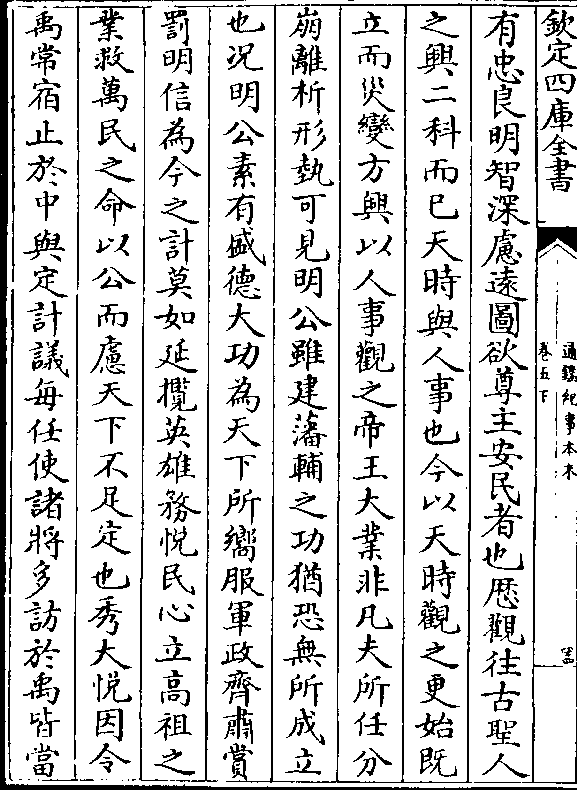 欽定四庫全書
通鑑紀事本末
卷五下
有忠良明智深慮遠圖欲尊主安民者也厯觀往古聖人
之興二科而已天時與人事也今以天時觀之更始既
立而災變方興以人事觀之帝王大業非凡夫所任分
崩離析形埶可見明公雖建藩輔之功猶恐無所成立
也况明公素有盛德大功為天下所嚮服軍政齊肅賞
罰明信為今之計莫如延攬英雄務悦民心立高祖之
業救萬民之命以公而慮天下不足定也秀大悦因令
禹常宿止於中與定計議每任使諸將多訪於禹皆當